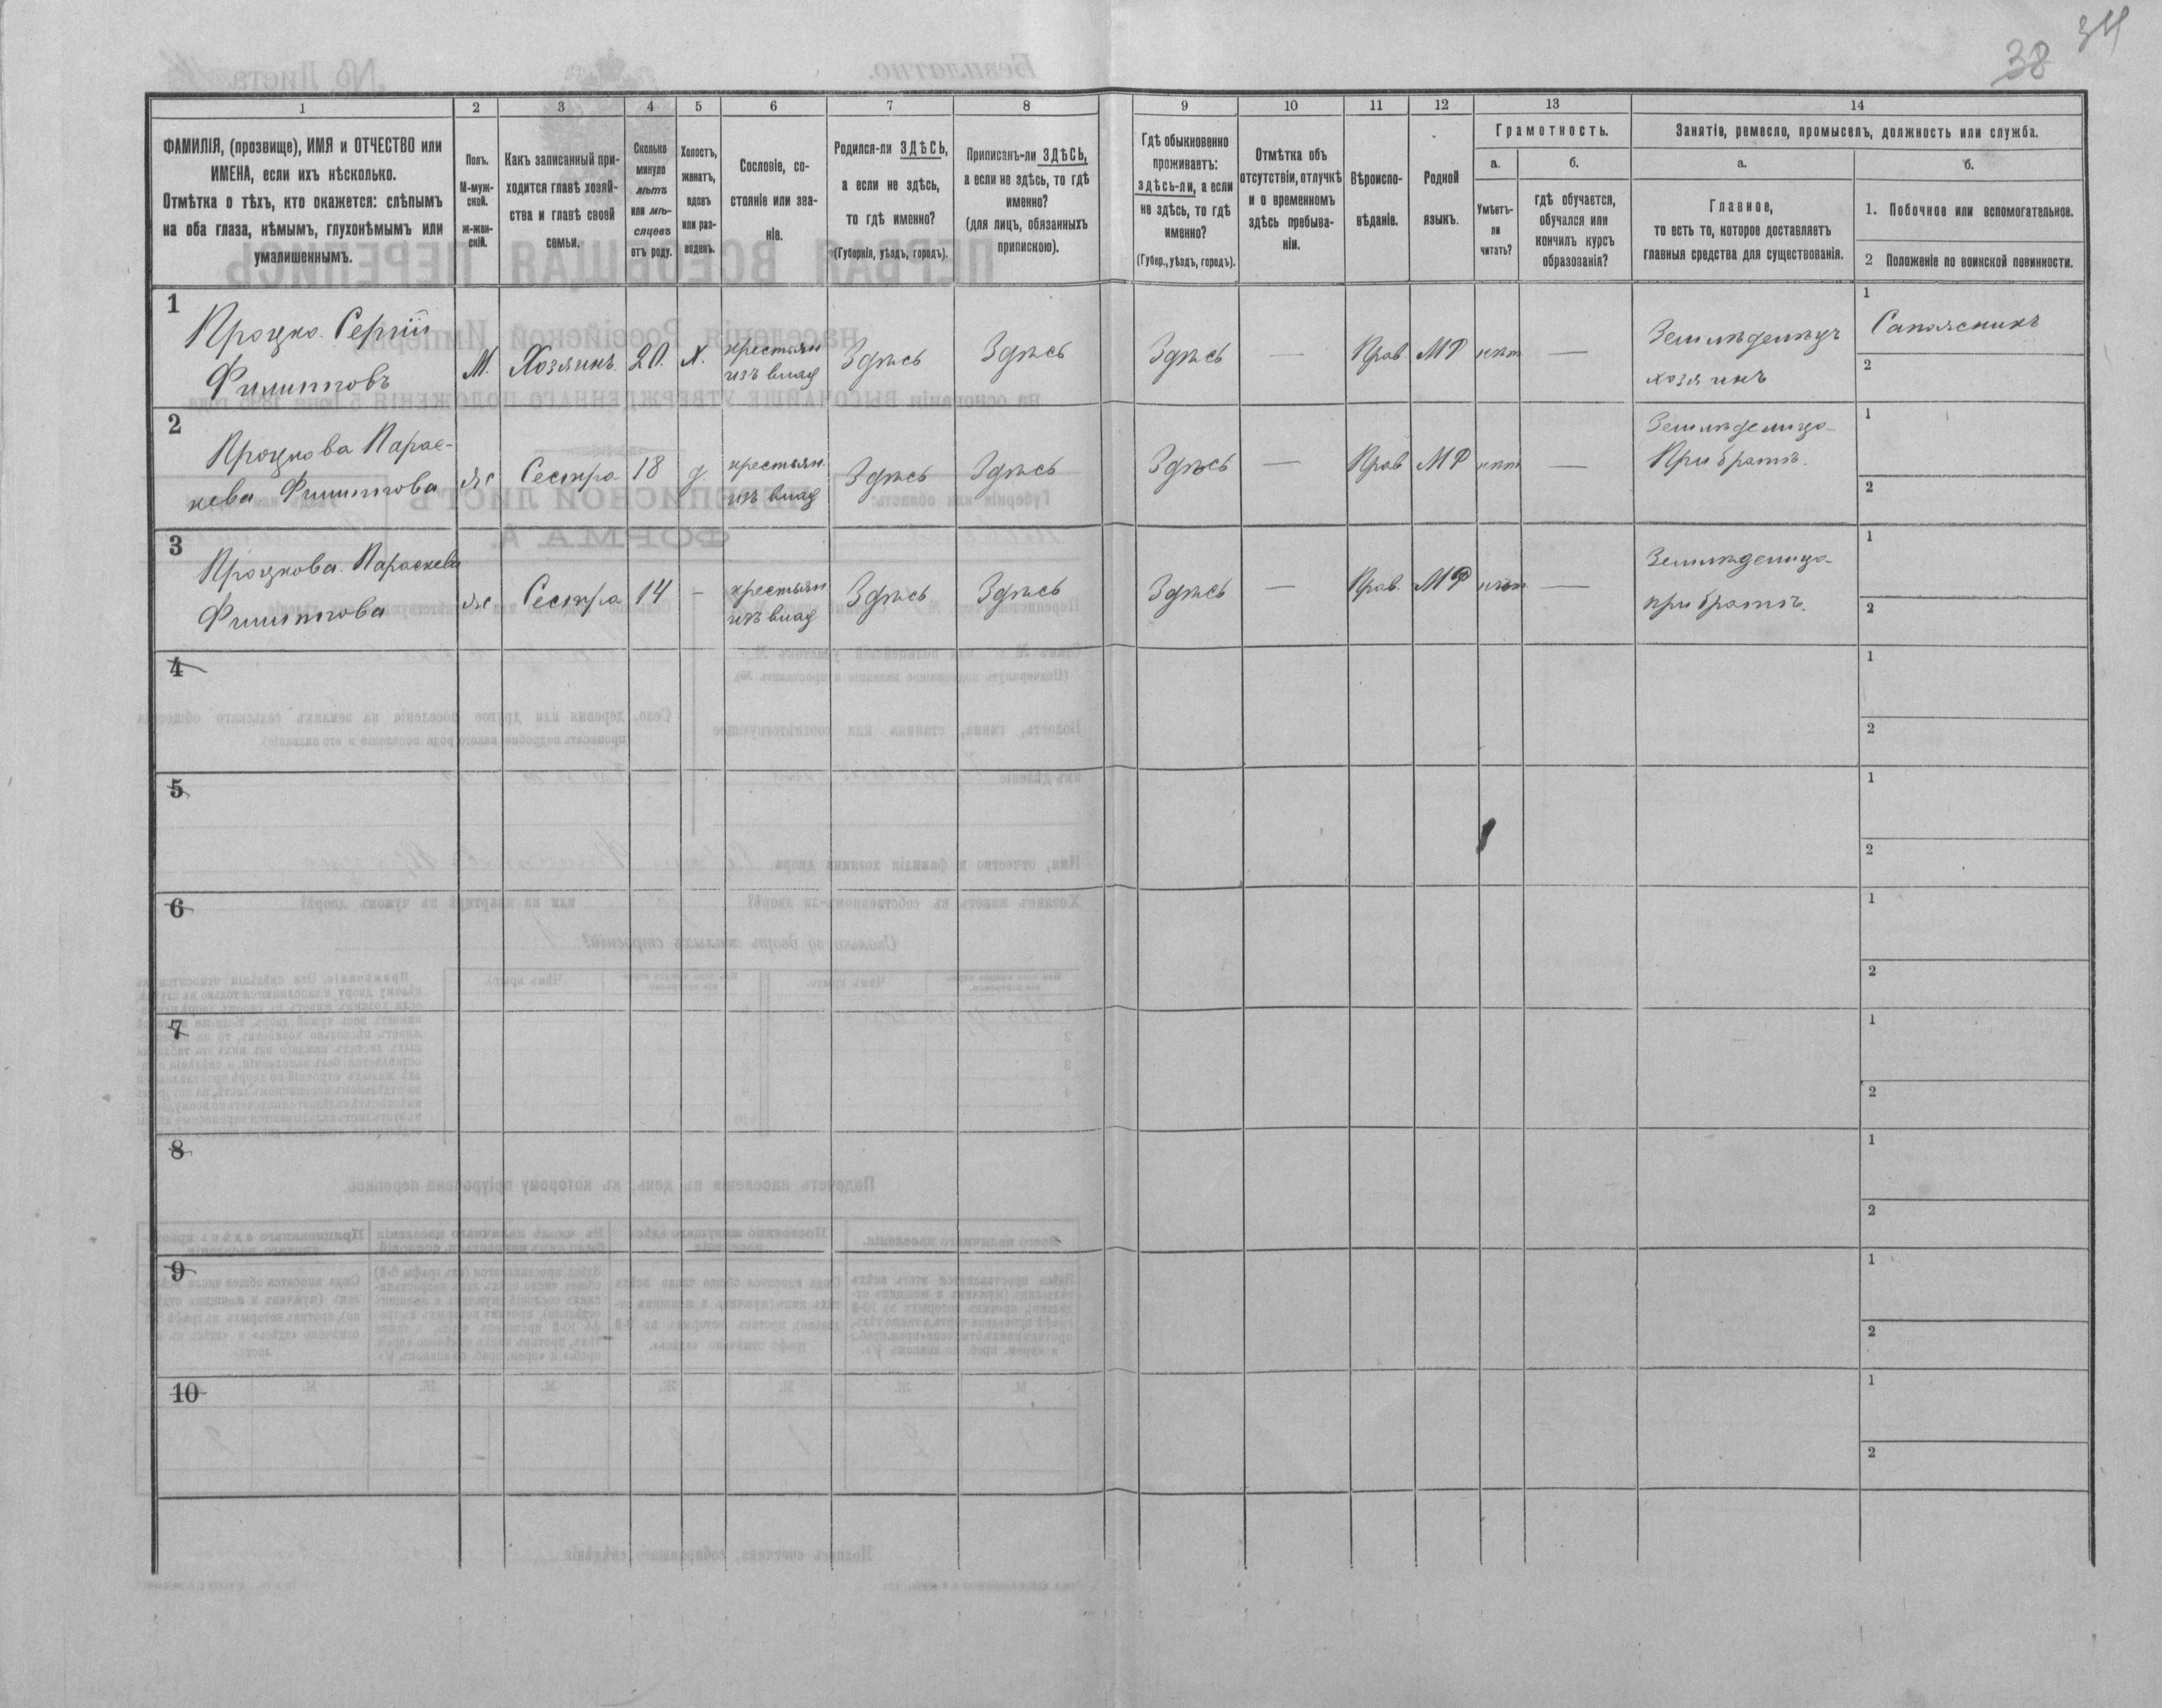 38 34
1 2 3 4 5 6 7 8 9 10 11 12 13 14
ФАМИЛІЯ, (прозвище), ИМЯ и ОТЧЕСТВО или
ИМЕНА, если ихъ нѣсколько.
Отмѣтка о тѣхъ, кто окажется: слѣпымъ
на оба глаза, нѣмымъ, глухонѣмымъ или
умалишеннымъ.
Полъ.
М-муж-
ской.
ж-жен-
скій.
Какъ записанный при-
ходится главѣ хозяй-
ства и главѣ своей
семьи.
Сколько
минуло
лѣтъ
или мѣ-
сяцевъ
отъ роду.
Холостъ,
женатъ,
вдовъ
или раз-
веденъ.
Сословіе, со-
стояніе или зва-
ніе.
Родился-ли ЗДѢСЬ,
а если не здѣсь,
то гдѣ именно?
(Губернія, уѣздъ, городъ).
Приписанъ-ли ЗДѢСЬ,
а если не здѣсь, то гдѣ
именно?
(для лицъ, обязанныхъ
припискою).
Гдѣ обыкновенно
проживаетъ:
здѣсь-ли, а если
не здѣсь, то гдѣ
именно?
(Губер., уѣздъ, городъ).
Отмѣтка объ
отсутствіи, отлучкѣ
и о временномъ
здѣсь пребыва-
ніи.
Вѣроиспо-
вѣданіе.
Родной
языкъ.
Грамотность.
а.
Умѣетъ-
ли
читать?
б.
гдѣ обучается,
обучался или
кончилъ курсъ
образованія?
Занятіе, ремесло, промыселъ, должность или служба.
а.
Главное,
то есть то, которое доставляетъ
главныя средства для существованія.
б.
1. Побочное или вспомогательное.
2 Положеніе по воинской повинности.
1
Процко. Сергій
Филипповъ
М. Хозяинъ. 20. Х.
крестьян
изъ влад
Здѣсь Здѣсь Здѣсь — Прав МР нѣт —
Землѣделецъ
хозяинъ
1
Сапожникъ
2
2
Процкова Парас-
кева Филиппова
Ж Сестра 18 д.
крестьян.
изъ влад
Здѣсь Здѣсь Здѣсь — Прав МР нѣт —
Землѣделица
При братѣ.
1
2
3
Процкова. Параскева
Филиппова
Ж Сестра 14 —
крестьян
изъ влад
Здѣсь Здѣсь Здѣсь — Прав. МР нѣт —
Землѣделица
при братѣ.
1
2
4
1
2
5
1
2
6
1
2
7
1
2
8
1
2
9
1
2
10
1
2